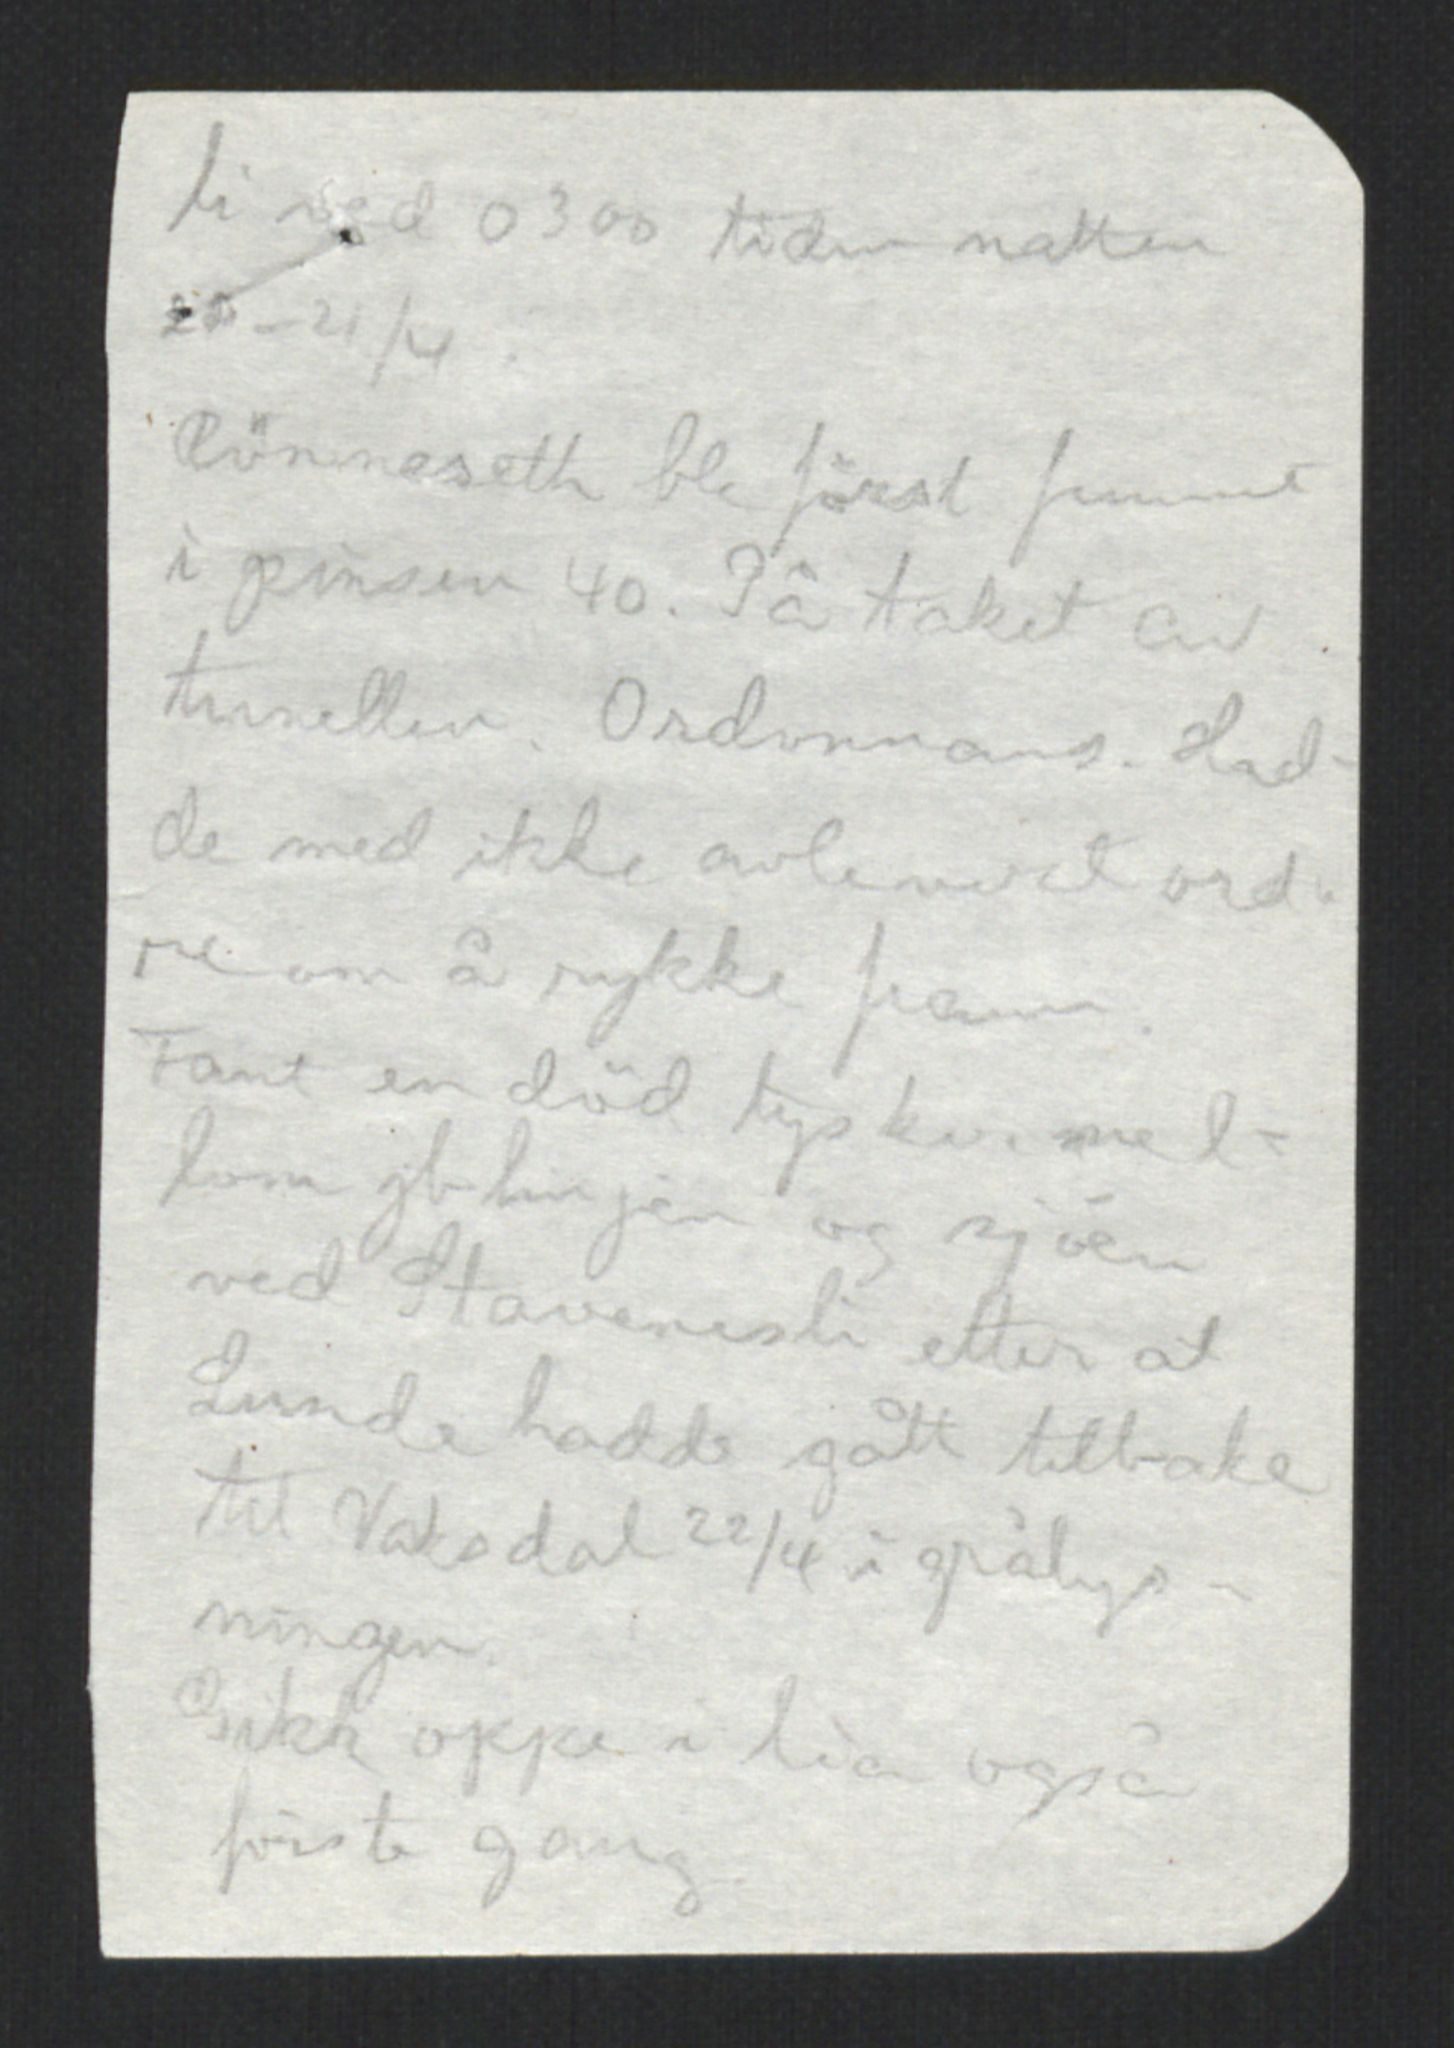 li ved 0300 tiden natten
20-21/4.
Rönneseth ble först funnet
i pinsen 40. På taket av
tunellen. Ordonnans. Had-
de med ikke avlevert ord-
re om å rykke fram.
Fant en död tysker mel-
lom jb linjen og sjöen
ved Stavenesli etter at
Lunde hadde gått tilbake
til Vaksdal 22/4 i grålys-
ningen.
oppe i lia også
förste gang